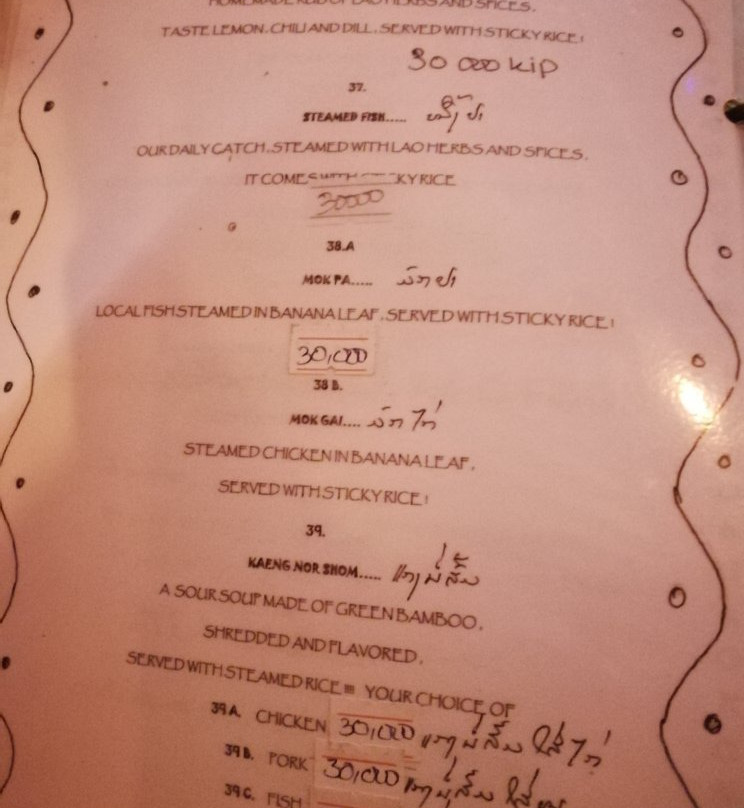 HOMEMADE OF LAO HERBS AND SPICES.
TASTE LEMON, CHILI AND DILL, SERVED WITH STICKY RICE!
30 000 kip
37.
STEAMED FISH.....
OUR DAILY CATCH, STEAMED WITH LAO HERBS AND SPICES.
IT COMES WITH KY RICE
30000
38.A
MOK PA..... ມົກປາ
LOCAL FISH STEAMED IN BANANA LEAF, SERVED WITH STICKY RICE!
30,000
38 B.
MOK GAI.... ມົກໄກ່
STEAMED CHICKEN IN BANANA LEAF,
SERVED WITH STICKY RICE!
39.
KAENG NOR SHOM.....
A SOUR SOUP MADE OF GREEN BAMBOO,
SHREDDED AND FLAVORED,
SERVED WITH STEAMED RICE!!! YOUR CHOICE OF
39 A. CHICKEN 30,000
39 B. PORK 30,000
39 C. FISH